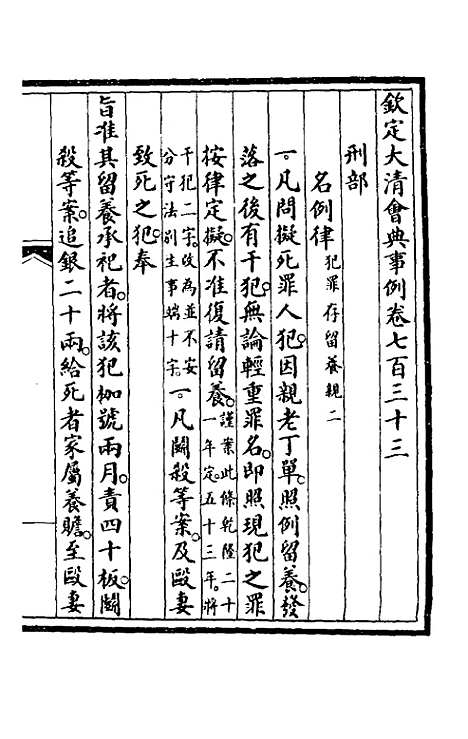 欽定大清會典事例卷七百三十三
刑部
名例律 犯罪存留養親二
一凡問擬死罪人犯因親老丁單照例留養發
落之後有干犯無論輕重罪名即照現犯之罪
按律定擬不准復請留養 謹案此條乾隆二十
一年定五十三年將
干犯二字改為並不安
分守法别生事端十字 一凡鬬殺等案及毆妻
致死之犯奉
旨准其留養承祀者將該犯枷號兩月責四十板鬬
殺等案追銀二十兩給死者家屬養贍至毆妻